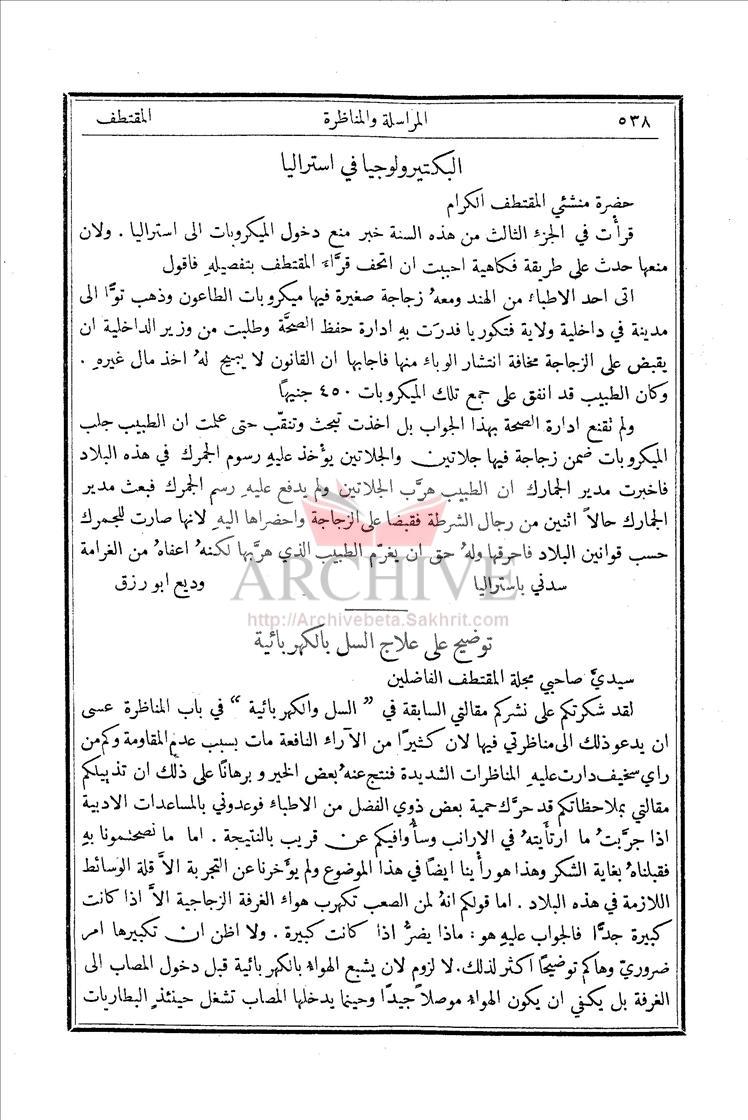 ٥٣٨ المراسلة والمناظرة المقتطف
البكتيرولوجيا في استراليا
حضرة منشئي المقتطف الكرام
قرأت في الجزء الثالث من هذه السنة خبر منع دخول الميكروبات الى استراليا . ولان
منعها حدث على طريقة فكاهية احببت ان اتحف قرَّاءَ المقتطف بتفصيلهِ فاقول
اتى احد الاطباء من الهند ومعهُ زجاجة صغيرة فيها ميكروبات الطاعون وذهب توًّا الى
مدينة في داخلية ولاية فتكوريا فدرَت بهِ ادارة حفظ الصحَّة وطلبت من وزير الداخلية ان
يقبض على الزجاجة مخافة انتشار الوباء منها فاجابها ان القانون لا يبيح لهُ اخذ مال غيرهِ .
وكان الطبيب قد انفق على جمع تلك الميكروبات ٤٥٠ جنيهاً
ولم نقنع ادارة الصحة بهذا الجواب بل اخذت تبحث وتنقّب حتى علمت ان الطبيب جلب
الميكروبات ضمن زجاجة فيها جلاتين والجلاتين يؤخذ عليهِ رسوم الجمرك في هذه البلاد
فاخبرت مدير الجمارك ان الطبيب هرَّب الجلاتين ولم يدفع عليهِ رسم الجمرك فبعث مدير
الجمارك حالاً اثنين من رجال الشرطة فقبضا على الزجاجة واحضراها اليهِ لانها صارت للجمرك
حسب قوانين البلاد فاحرقها ولهُ حق ان يغرّم الطبيب الذي هرَّبها لكنهُ اعفاهُ من الغرامة
سدني باستراليا وديع ابو رزق
ARCHIVE
http://Archivebeta.Sakhrit.com
توضيح على علاج السل بالكهربائية
سيديَّ صاحبي مجلة المقتطف الفاضلين
لقد شكرتكم على نشركم مقالتي السابقة في " السل والكهربائية " في باب المناظرة عسى
ان يدعو ذلك الى مناظرتي فيها لان كثيرًا من الآراء النافعة مات بسبب عدم المقاومة وكم من
راي سخيف دارت عليهِ المناظرات الشديدة فنتج عنهُ بعض الخير و برهاناً على ذلك ان تذييلكم
مقالتي بملاحظاتكم قد حرَّك حمية بعض ذوي الفضل من الاطباء فوعدوني بالمساعدات الادبية
اذا جرَّبتُ ما ارتأَيتهُ في الارانب وسأُوافيكم عن قريب بالنتيجة . اما ما نصحتمونا بهِ
فقبلناهُ بغاية الشكر وهذا هو رأْينا ايضاً في هذا الموضوع ولم يؤَخرنا عن التجربة الاَّ قلة الوسائط
اللازمة في هذه البلاد . اما قولكم انهُ لمن الصعب تكهرب هواء الغرفة الزجاجية الاَّ اذا كانت
كبيرة جدًّا فالجواب عليهِ هو : ماذا يضرُّ اذا كانت كبيرة . ولا اظن ان تكبيرها امر
ضروريّ وهاكم توضيحاً اكثر لذلك. لا لزوم لان يشبع الهواءُ بالكهربائية قبل دخول المصاب الى
الغرفة بل يكفي ان يكون الهواءُ موصلاً جيدًا وحينما يدخلها المصاب تشغل حينئذٍ البطاريات